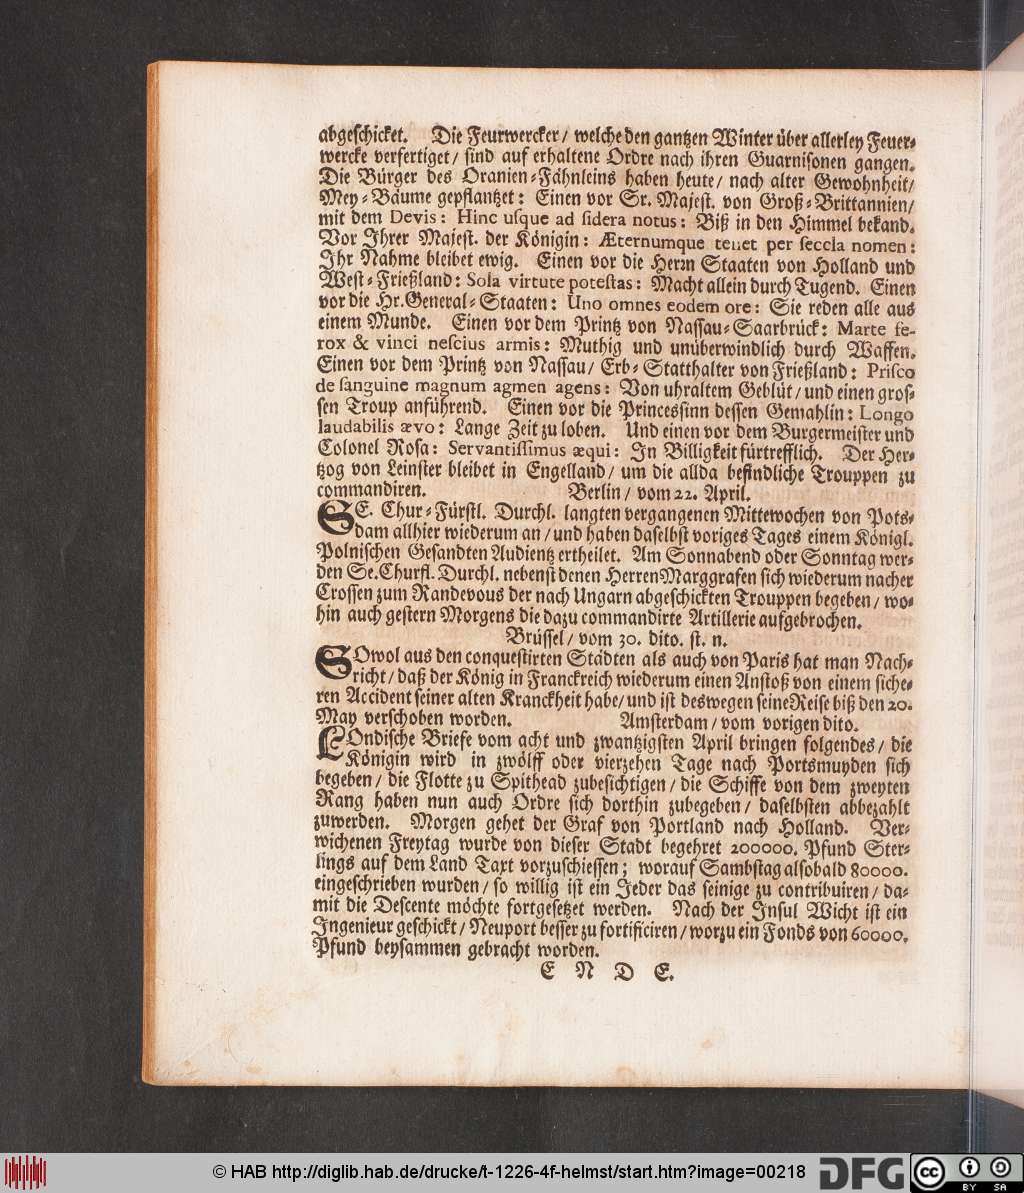 abgeschicket. Die Feurwercker / welche den gantzen Winter über allerley Feuer-
wercke verfertiget / sind auf erhaltene Ordre nach ihren Guarnisonen gangen.
Die Bürger des Oranien-Fähnleins haben heute / nach alter Gewohnheit /
Mey-Bäume gepflantzet: Einen vor Sr. Majest. von Groß-Brittannien /
mit dem Devis: Hinc usque ad sidera notus: Biß in den Himmel bekand.
Vor Ihrer Majest. der Königin: Æternumque tenet per seccla nomen:
Ihr Nahme bleibet ewig. Einen vor die Herrn Staaten von Holland und
West-Frießland: Sola virtute potestas: Macht allein durch Tugend. Einen
vor die Hr. General-Staaten: Uno omnes eodem ore: Sie reden alle aus
einem Munde. Einen vor dem Printz von Nassau-Saarbrück: Marte fe-
rox & vinci nescius armis: Muthig und unüberwindlich durch Waffen.
Einen vor dem Printz von Nassau / Erb-Statthalter von Frießland: Prisco
de sanguine magnum agmen agens: Von uhraltem Geblüt / und einen gros-
sen Troup anführend. Einen vor die Princessinn dessen Gemahlin: Longo
laudabilis ævo: Lange Zeit zu loben. Und einen vor dem Burgermeister und
Colonel Rosa: Servantissimus æqui: In Billigkeit fürtrefflich. Der Her-
tzog von Leinster bleibet in Engelland / um die allda befindliche Trouppen zu
commandiren. Berlin / vom 22. April.
SE. Chur-Fürstl. Durchl. langten vergangenen Mittewochen von Pots-
dam allhier wiederum an / und haben daselbst voriges Tages einem Königl.
Polnischen Gesandten Audientz ertheilet. Am Sonnabend oder Sonntag wer-
den Se. Churfl. Durchl. nebenst denen Herren Marggrafen sich wiederum nacher
Crossen zum Randevous der nach Ungarn abgeschickten Trouppen begeben / wo-
hin auch gestern Morgens die dazu commandirte Artillerie aufgebrochen.
Brüssel / vom 30. dito. st. n.
SOwol aus den conquestirten Städten als auch von Paris hat man Nach-
richt / daß der König in Franckreich wiederum einen Anstoß von einem siche-
ren Accident seiner alten Kranckheit habe / und ist deswegen seine Reise biß den 20.
May verschoben worden. Amsterdam / vom vorigen dito.
LOndische Briefe vom acht und zwantzigsten April bringen folgendes / die
Königin wird in zwölff oder vierzehen Tage nach Portsmuyden sich
begeben / die Flotte zu Spithead zubesichtigen / die Schiffe von dem zweyten
Rang haben nun auch Ordre sich dorthin zubegeben / daselbsten abbezahlt
zuwerden. Morgen gehet der Graf von Portland nach Holland. Ver-
wichenen Freytag wurde von dieser Stadt begehret 200000. Pfund Ster-
lings auf dem Land Taxt vorzuschiessen; worauf Sambstag alsobald 80000.
eingeschrieben wurden / so willig ist ein Jeder das seinige zu contribuiren / da-
mit die Descente möchte fortgesetzet werden. Nach der Insul Wicht ist ein
Ingenieur geschickt / Neuport besser zu fortificiren / worzu ein Fonds von 60000.
Pfund beysammen gebracht worden.
E N D E.
© HAB http://diglib.hab.de/drucke/t-1226-4f-helmst/start.htm?image=00218 DFG cc BY SA